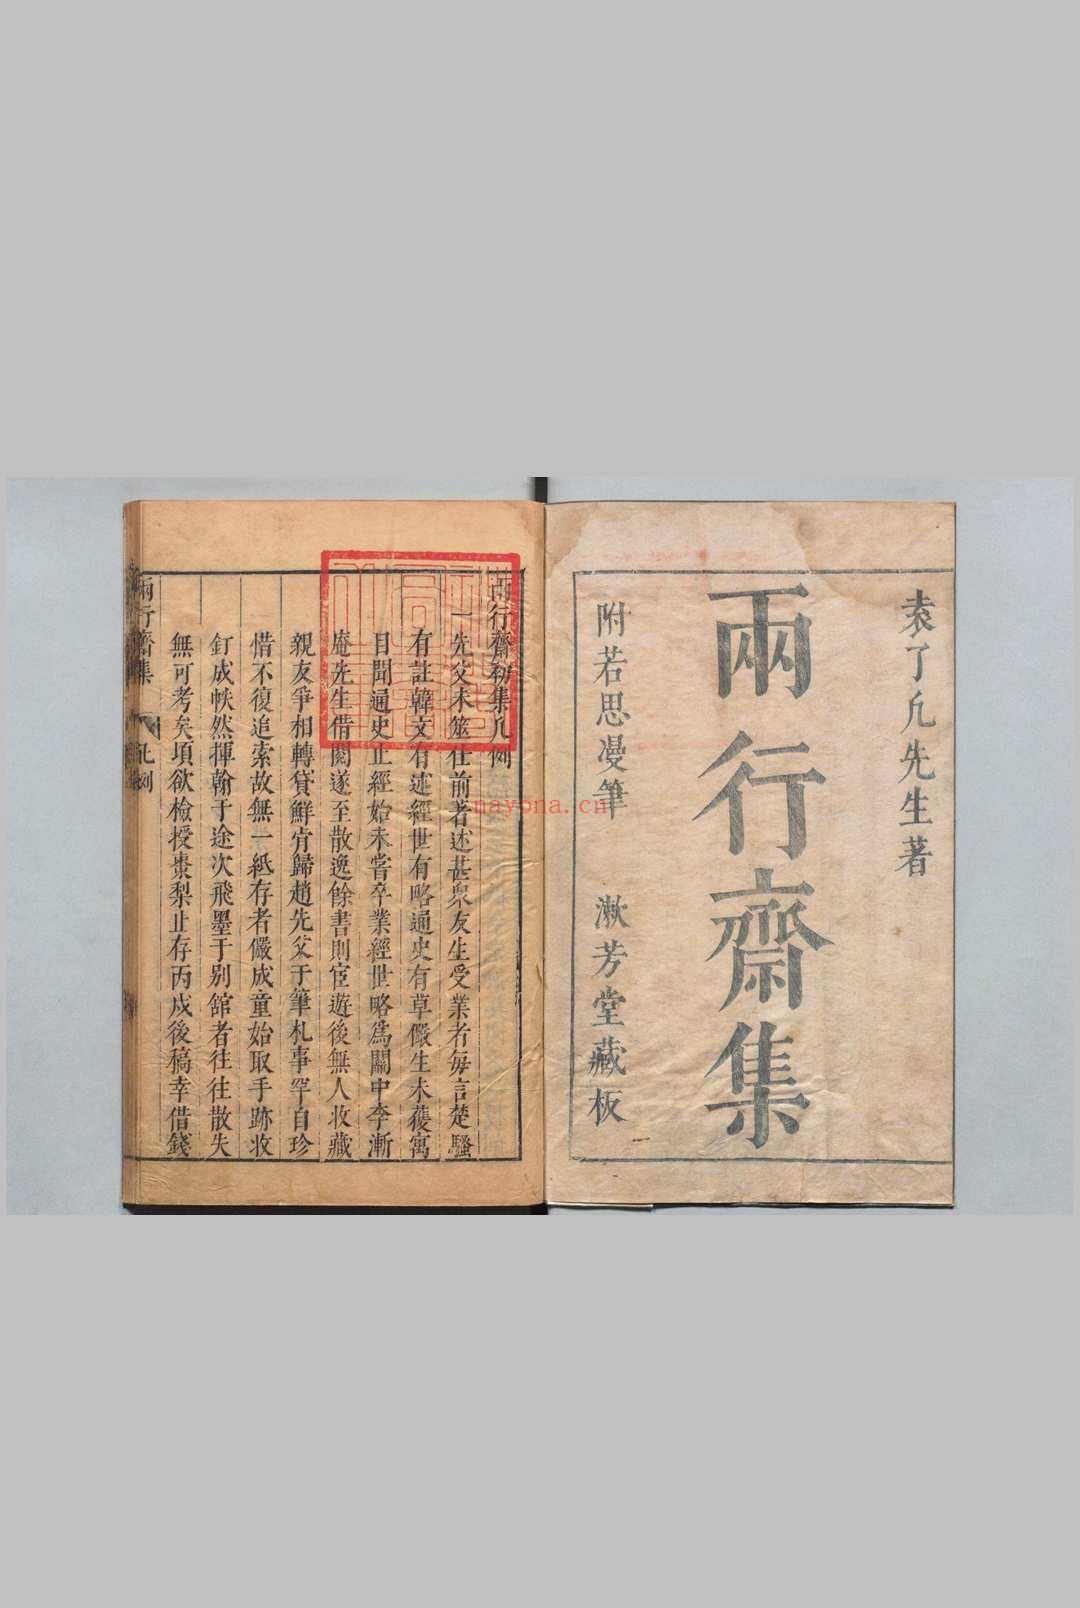 袁了凡先生著
兩行齋集
附若思漫筆 漱芳堂藏板
兩行齋初集凡例
一先父未筮仕前著述甚衆友生受業者每言楚騷
有註韓文有述經世有略通史有草儼生未獲寓
目聞通史止經始未嘗卒業經世略爲關中李漸
庵先生借閱遂至散逸餘書則宦遊後無人收藏
親友爭相轉貸鮮肯歸趙先父于筆札事罕自珍
惜不復追索故無一紙存者儼成童始取手跡收
釘成帙然揮翰于途次飛墨于别舘者往往散失
無可考矣項欲檢授棗梨止存丙戌後稿幸借錢
兩行齋集 凡例
nayona.cn